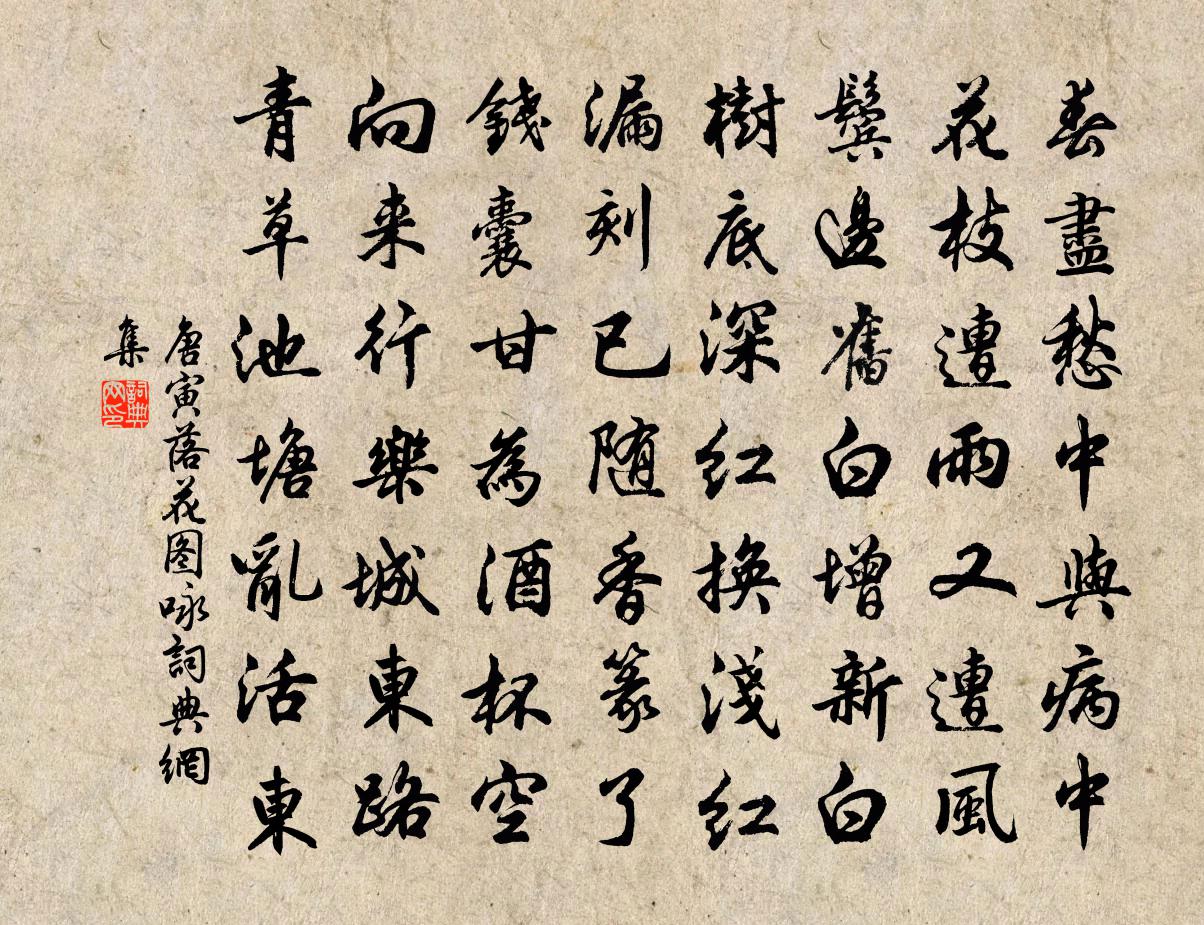 春盡愁中與病中
花枝遭雨又遭風
鬢邊舊白增新白
樹底深紅換淺紅
漏刻已随香篆了
錢囊甘為酒杯空
向来行樂城東路
青草池塘亂活東
唐寅落花图咏詞典網
集
詞典网印